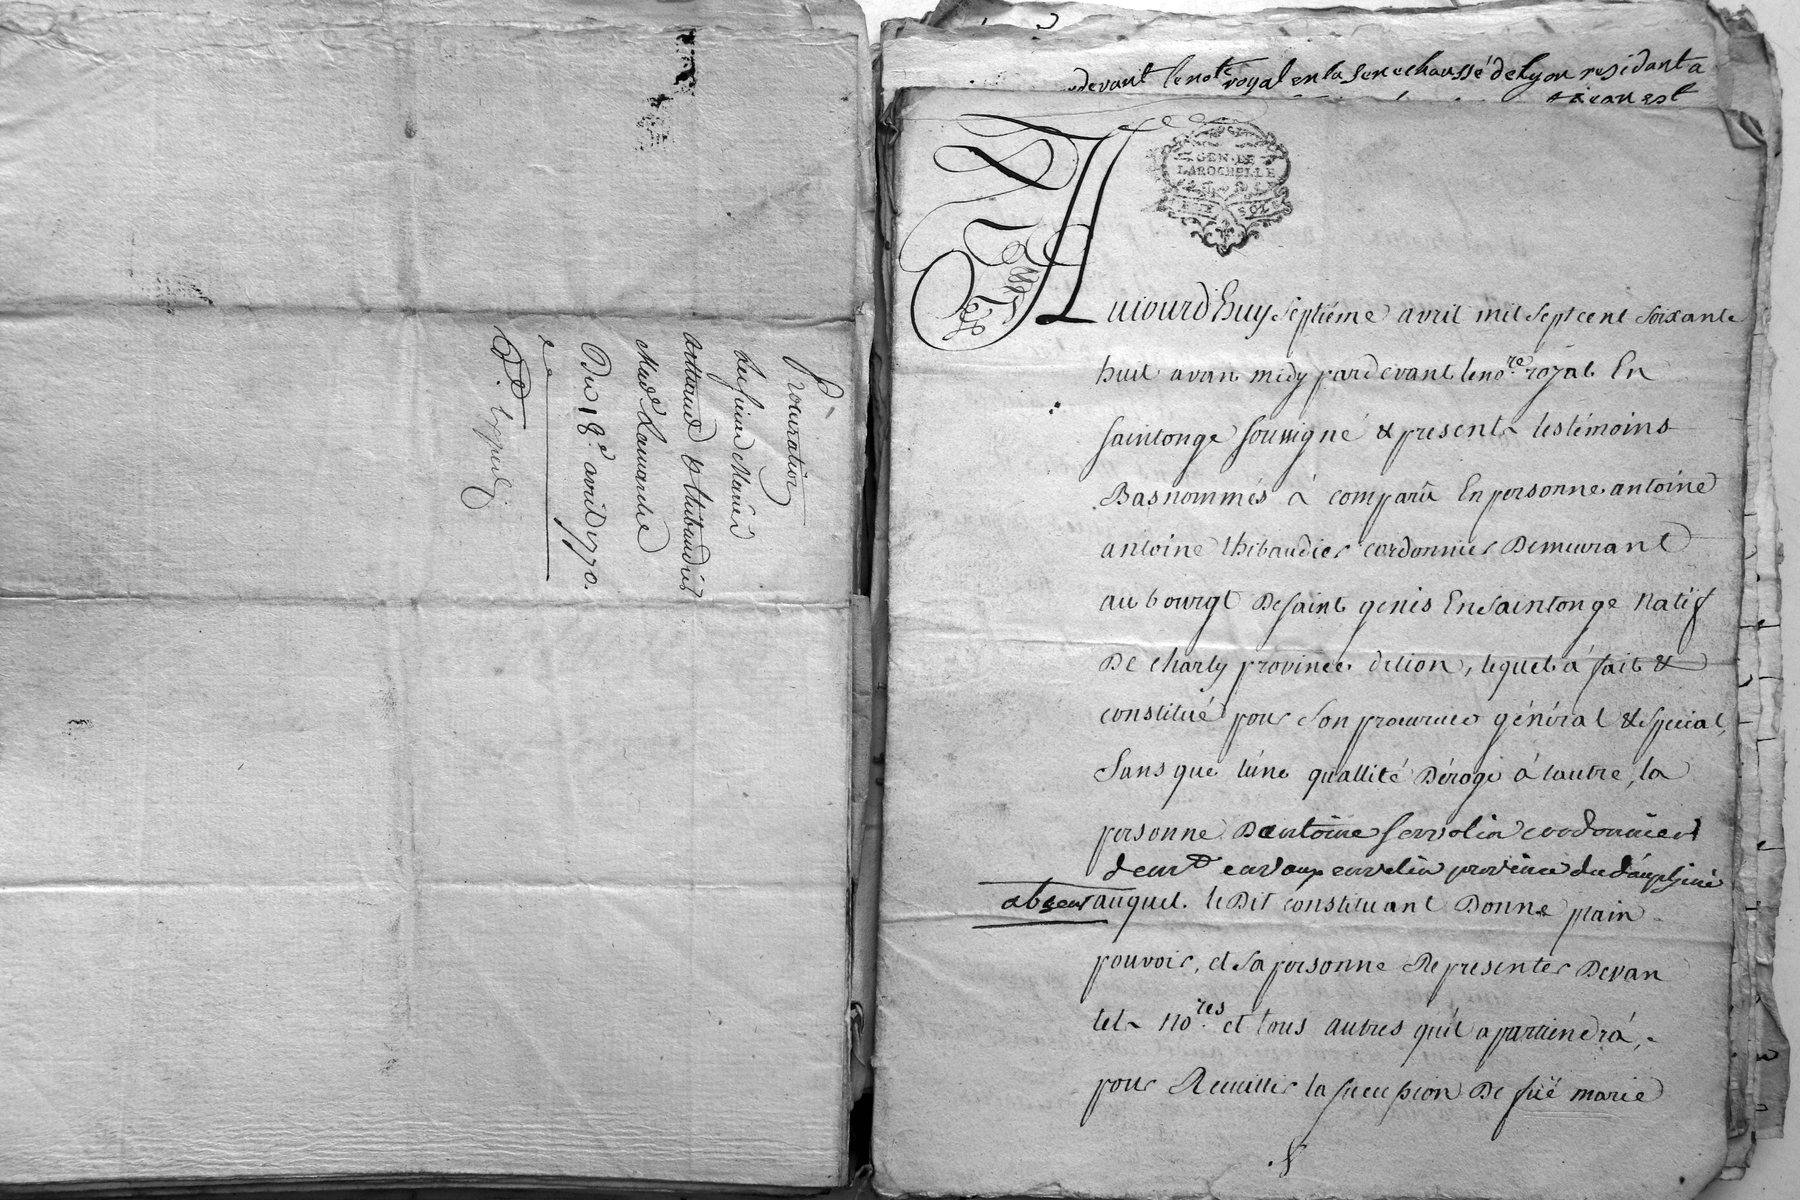 Procuration
des sieur Mariés
arthaud & thibaudier
Mad.e Lamarche
Du 18.e avril 1770.
devant le not.e royal en la senechaussé de Lyon residant a
GEN. DE
LAROCHELLE
SOLS
Aujourd'huy septiéme avril mil sept cent soixante
huit avan midy pardevant le no.re royal En
saintonge soussigné & present les témoins
Basnommés à comparû En personne antoine
antoine thibaudier cordonnier Demeurant
au bourgt De saint genis En saintonge Natif
De charly province delion, lequel à fait &
constitué pour son procureur général & spécial,
sans que lúne quallité Déroge à lautre, la
personne D antoine servolin cordonnier
province du dauphiné
absent auquel le Dit constituant Donne plain
pouvoir, et sa personne Representer Devan
tel no.res et tous autres quil apartiendrá,
pour Recuillir la sucession De füe marie